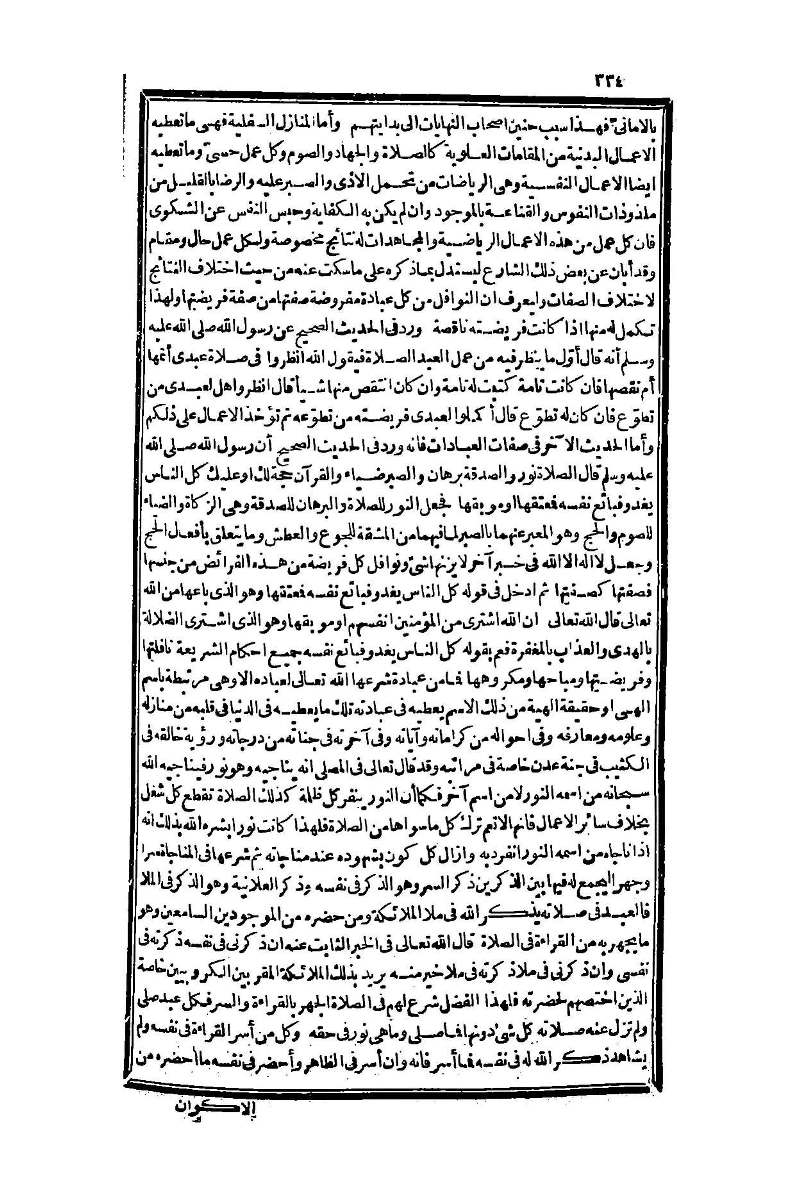 ٣٣٤
بالاماني فهذا سبب حنين اصحاب النهايات الى بدايتهم وأما المنازل السفلية فهى ما تعطيه
الاعمال البدنية من المقامات العلوية كالصلاة والجهاد والصوم وكل عمل حسى وما تعطيه
ايضا الاعمال النفسية وهى الرياضات من تحمل الاذى والصبر عليه والرضا بالقليل من
ملذوذات النفوس والقناعة بالموجود وان لم يكن به الكفاية وحبس النفس عن الشكوى
فان كل عمل من هذه الاعمال الرياضية والمجاهدات له نتائج مخصوصة ولكل عمل حال ومقام
وقد أبان عن بعض ذلك الشارع ليستدل بما ذكره على ما سكت عنه من حيث اختلاف النتائج
لاختلاف الصفات وليعرف ان النوافل من كل عبادة مفروضة صفتها من صفة فريضتها ولهذا
تكمل له منها اذا كانت فريضته ناقصة ورد فى الحديث الصحيح عن رسول الله صلى الله عليه
وسلم أنه قال أول ما ينظر فيه من عمل العبد الصلاة فيقول الله انظروا فى صلاة عبدى أتمها
أم نقصها فان كانت تامة كتبت له تامة وان كان انتقص منها شيأ قال انظروا هل لعبدى من
تطوع فان كان له تطوع قال أكملوا لعبدى فريضته من تطوعه ثم تؤخذ الاعمال على ذلكم
وأما الحديث الآخر فى صفات العبادات فانه ورد فى الحديث الصحيح أن رسول الله صلى الله
عليه وسلم قال الصلاة نور والصدقة برهان والصبر ضياء والقرآن حجة لك او عليك كل الناس
يغدو فبائع نفسه فمعتقها او موبقها فجعل النور للصلاة والبرهان للصدقة وهى الزكاة والضياء
للصوم والحج وهو المعبر عنهما بالصبر لما فيهما من المشقة للجوع والعطش وما يتعلق بأفعال الحج
وجعل لا اله الا الله فى خبر آخر لا يزنها شئ ونوافل كل فريضة من هذه الفرائض من جنسها
فصفتها كصفتها ثم ادخل فى قوله كل الناس يغدو فبائع نفسه فمعتقها وهو الذى باعها من الله
تعالى قال الله تعالى ان الله اشترى من المؤمنين انفسهم او موبقها وهو الذى اشترى الضلالة
بالهدى والعذاب بالمغفرة فعم بقوله كل الناس يغدو فبائع نفسه جميع احكام الشريعة نافلتها
وفريضتها ومباحها ومكروهها فما من عبادة شرعها الله تعالى لعباده الا وهى مرتبطة باسم
الهى او حقيقة الهية من ذلك الاسم يعطيه فى عبادته تلك ما يعطيه فى الدنيا فى قلبه من منازله
وعلومه ومعارفه وفى احواله من كراماته وآياته وفى آخرته فى جناته من درجاته ورؤية خالقه فى
الكثيب فى جنة عدن خاصة فى مراتبه وقد قال تعالى فى المصلى انه يناجيه وهو نور فيناجيه الله
سبحانه من اسمه النور لا من اسم آخر فكما أن النور ينفر كل ظلمة كذلك الصلاة تقطع كل شغل
بخلاف سائر الاعمال فانها لا تعم ترك كل ما سواها من الصلاة فلهذا كانت نورا يبشره الله بذلك انه
اذا ناجاه من اسمه النور انفرد به وازال كل كون بشهوده عند مناجاته ثم شرعها فى المناجاة سرا
وجهرا ليجمع له فيها بين الذكرين ذكر السر وهو الذكر فى نفسه وذكر العلانية وهو الذكر فى الملا
فالعبد فى صلاته يذكر الله فى ملا الملائكة ومن حضره من الموجودين السامعين وهو
ما يجهر به من القراءة فى الصلاة قال الله تعالى فى الخبر الثابت عنه ان ذكرنى فى نفسه ذكرته فى
نفسى وان ذكرنى فى ملا ذكرته فى ملا خير منه يريد بذلك الملائكة المقربين الكروبيين خاصة
الذين اختصهم لحضرته فلهذا الفضل شرع لهم فى الصلاة الجهر بالقراءة والسر فكل عبد صلى
ولم تزل عنه صلاته كل شئ دونها فما صلى وما هى نور فى حقه وكل من أسر القراءة فى نفسه ولم
يشاهد ذكر الله له فى نفسه فما أسر فانه وان أسر فى الظاهر وأحضر فى نفسه ما احضره من
الاكوان